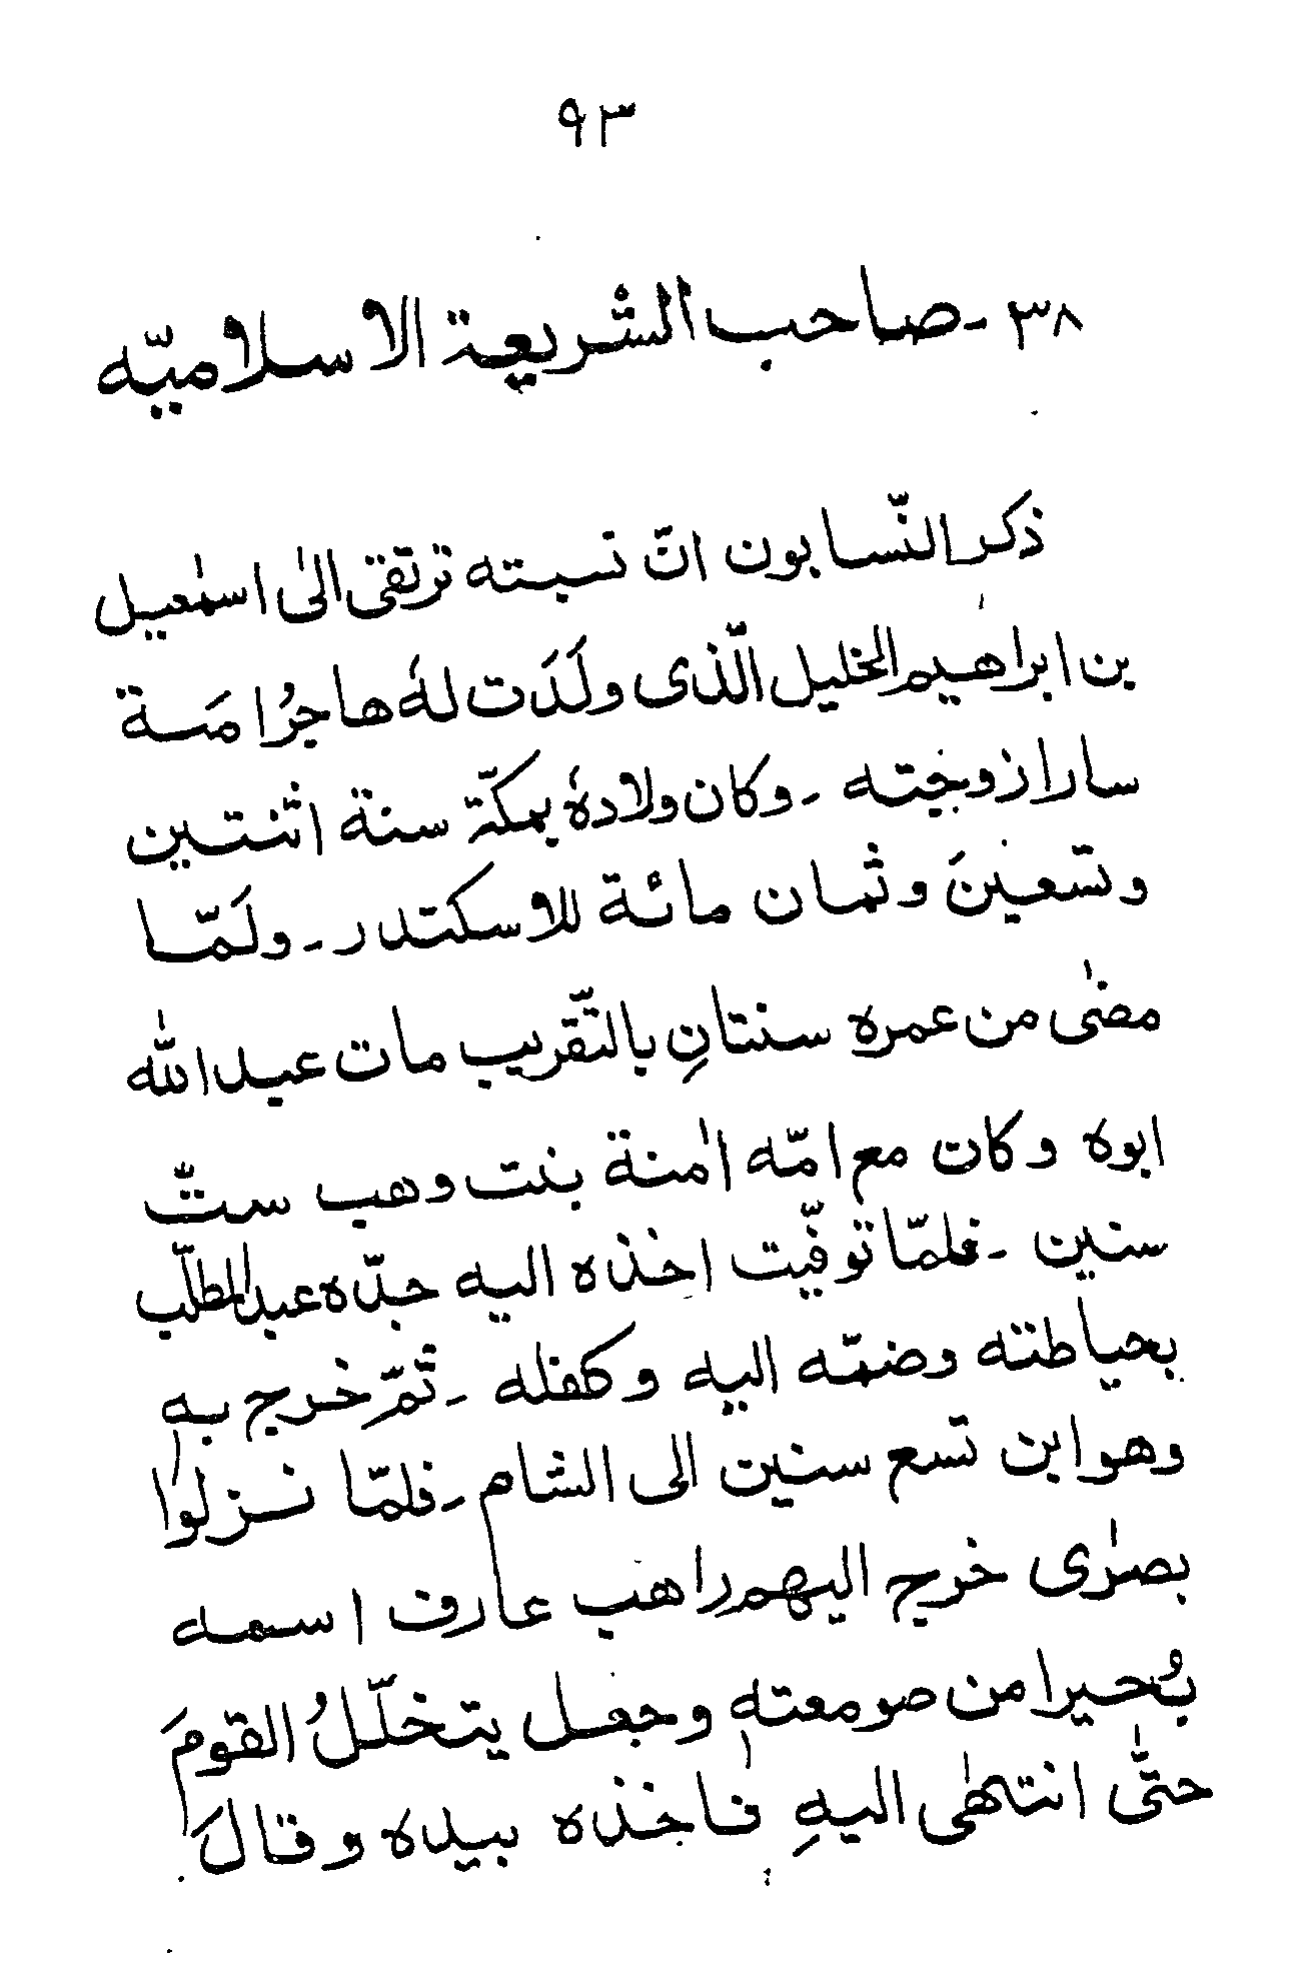 ٩٣
٣٨ - صاحب الشريعة الاسلاميّه
ذكر النّسابون انّ نسبته ترتقى الىٰ اسمٰعيل
بن ابراهيم الخليل الّذى ولَدَت لهٗ هاجرُ امَة
سارا زوجته - وكان ولادهٗ بمكّة سنة اثنتين
وتسعينَ وثمان مائة للاسكندر - ولَمّا
مضىٰ من عمره سنتانِ بالتّقريب مات عبد الله
ابوه وكان مع امّه اٰمنة بنت وهب ستّ
سنين - فلمّا توفّيت اخذه اليه جدّه عبد المطلّب
بحياطته وضمّه اليه وكفله - ثمّ خرج به
وهو ابن تسع سنين الى الشام - فلمّا نزلوا
بصرٰى خرج اليهم راهب عارف اسمه
بُحيرا من صومعته وجعل يتخلّلُ القومَ
حتّٰى انتهٰى اليهِ فاخذه بيده وقالَ